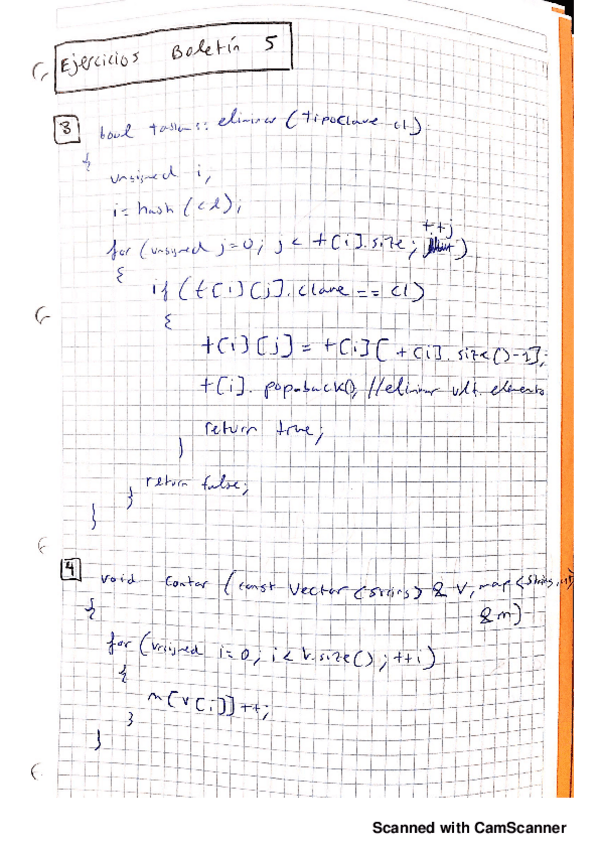 Ejercicios Boletín 5
3 bool tabla:: eliminar (tipoclave cl)
{
unsigned i;
i = hash (cl);
for (unsigned j=0; j < t[i].size; ++j)
{
if (t[i][j].clave == cl)
{
t[i][j] = t[i][t[i].size()-1];
t[i].popback(); //eliminar ult. elemento
return true;
}
return false;
}
}
4 void contar (const Vector <String> & V, map <String, int>
&m)
{
for (unsigned i=0; i < V.size(); ++i)
{
m[v[i]]++;
}
}
Scanned with CamScanner